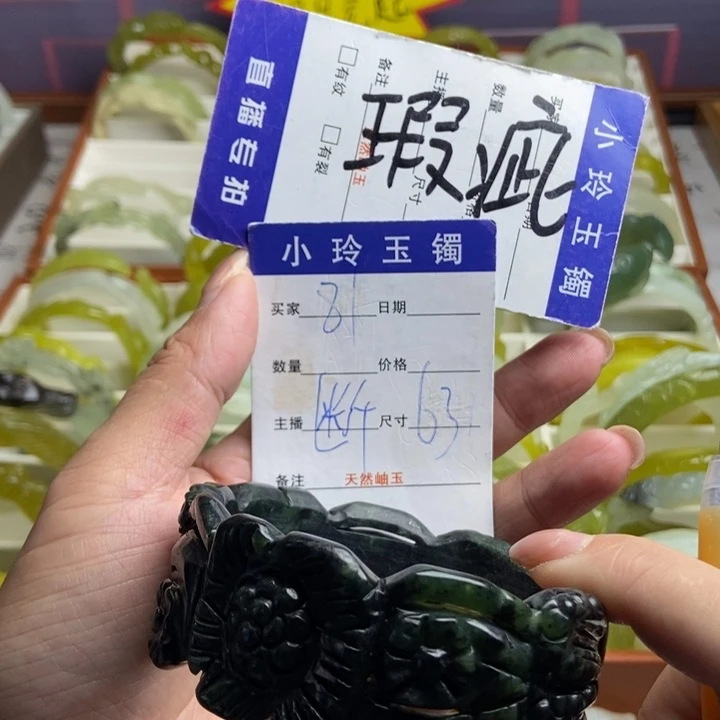 直播专拍
小玲玉镯
备注
数量
尺寸
□有纹
□有裂
瑕疵
小玲玉镯
买家 81 日期
数量 价格
主播 尺寸 63
备注 天然岫玉